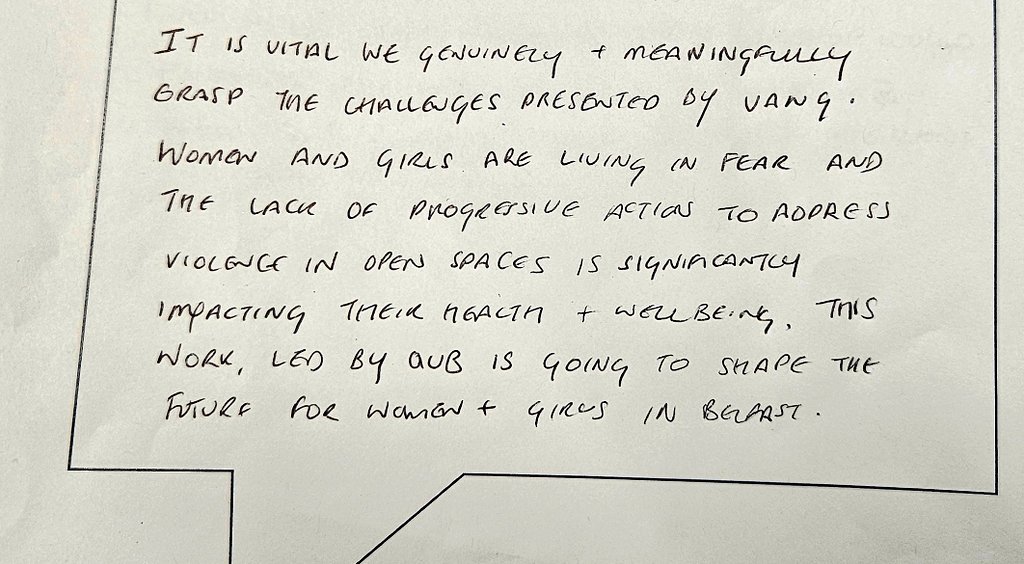 IT IS VITAL WE GENUINELY + MEANINGFULLY
GRASP THE CHALLENGES PRESENTED BY VAWG.
WOMEN AND GIRLS ARE LIVING IN FEAR AND
THE LACK OF PROGRESSIVE ACTION TO ADDRESS
VIOLENCE IN OPEN SPACES IS SIGNIFICANTLY
IMPACTING THEIR HEALTH + WELLBEING. THIS
WORK, LED BY QUB IS GOING TO SHAPE THE
FUTURE FOR WOMEN + GIRLS IN BELFAST.